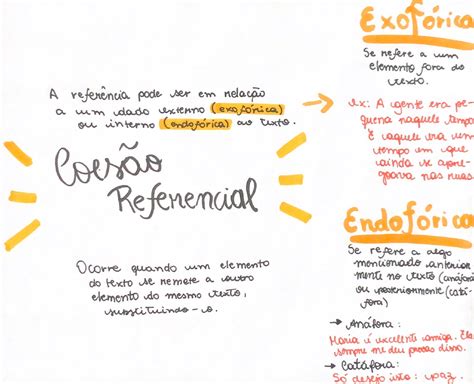 A referência pode ser em relação
a um dado externo (exofórica)
ou interno (endofórica) ao texto.
Coesão
Referencial
Ocorre quando um elemento
do texto se remete a outro
elemento do mesmo texto,
substituindo-o.
Exofórica
Se refere a um
elemento fora do
texto.
ex: A gente era pe
quena naquele tempo
E aquele era um
tempo em que
ainda se apre
goava nas ruas
Endofórica
Se refere a algo
mencionado anterior
mente no texto (anáfora)
ou posteriormente (catá-
fora)
→ Anáfora:
Maria é excelente amiga. Ela
sempre me deu provas disso.
→ Catáfora:
Só desejo isto: paz.